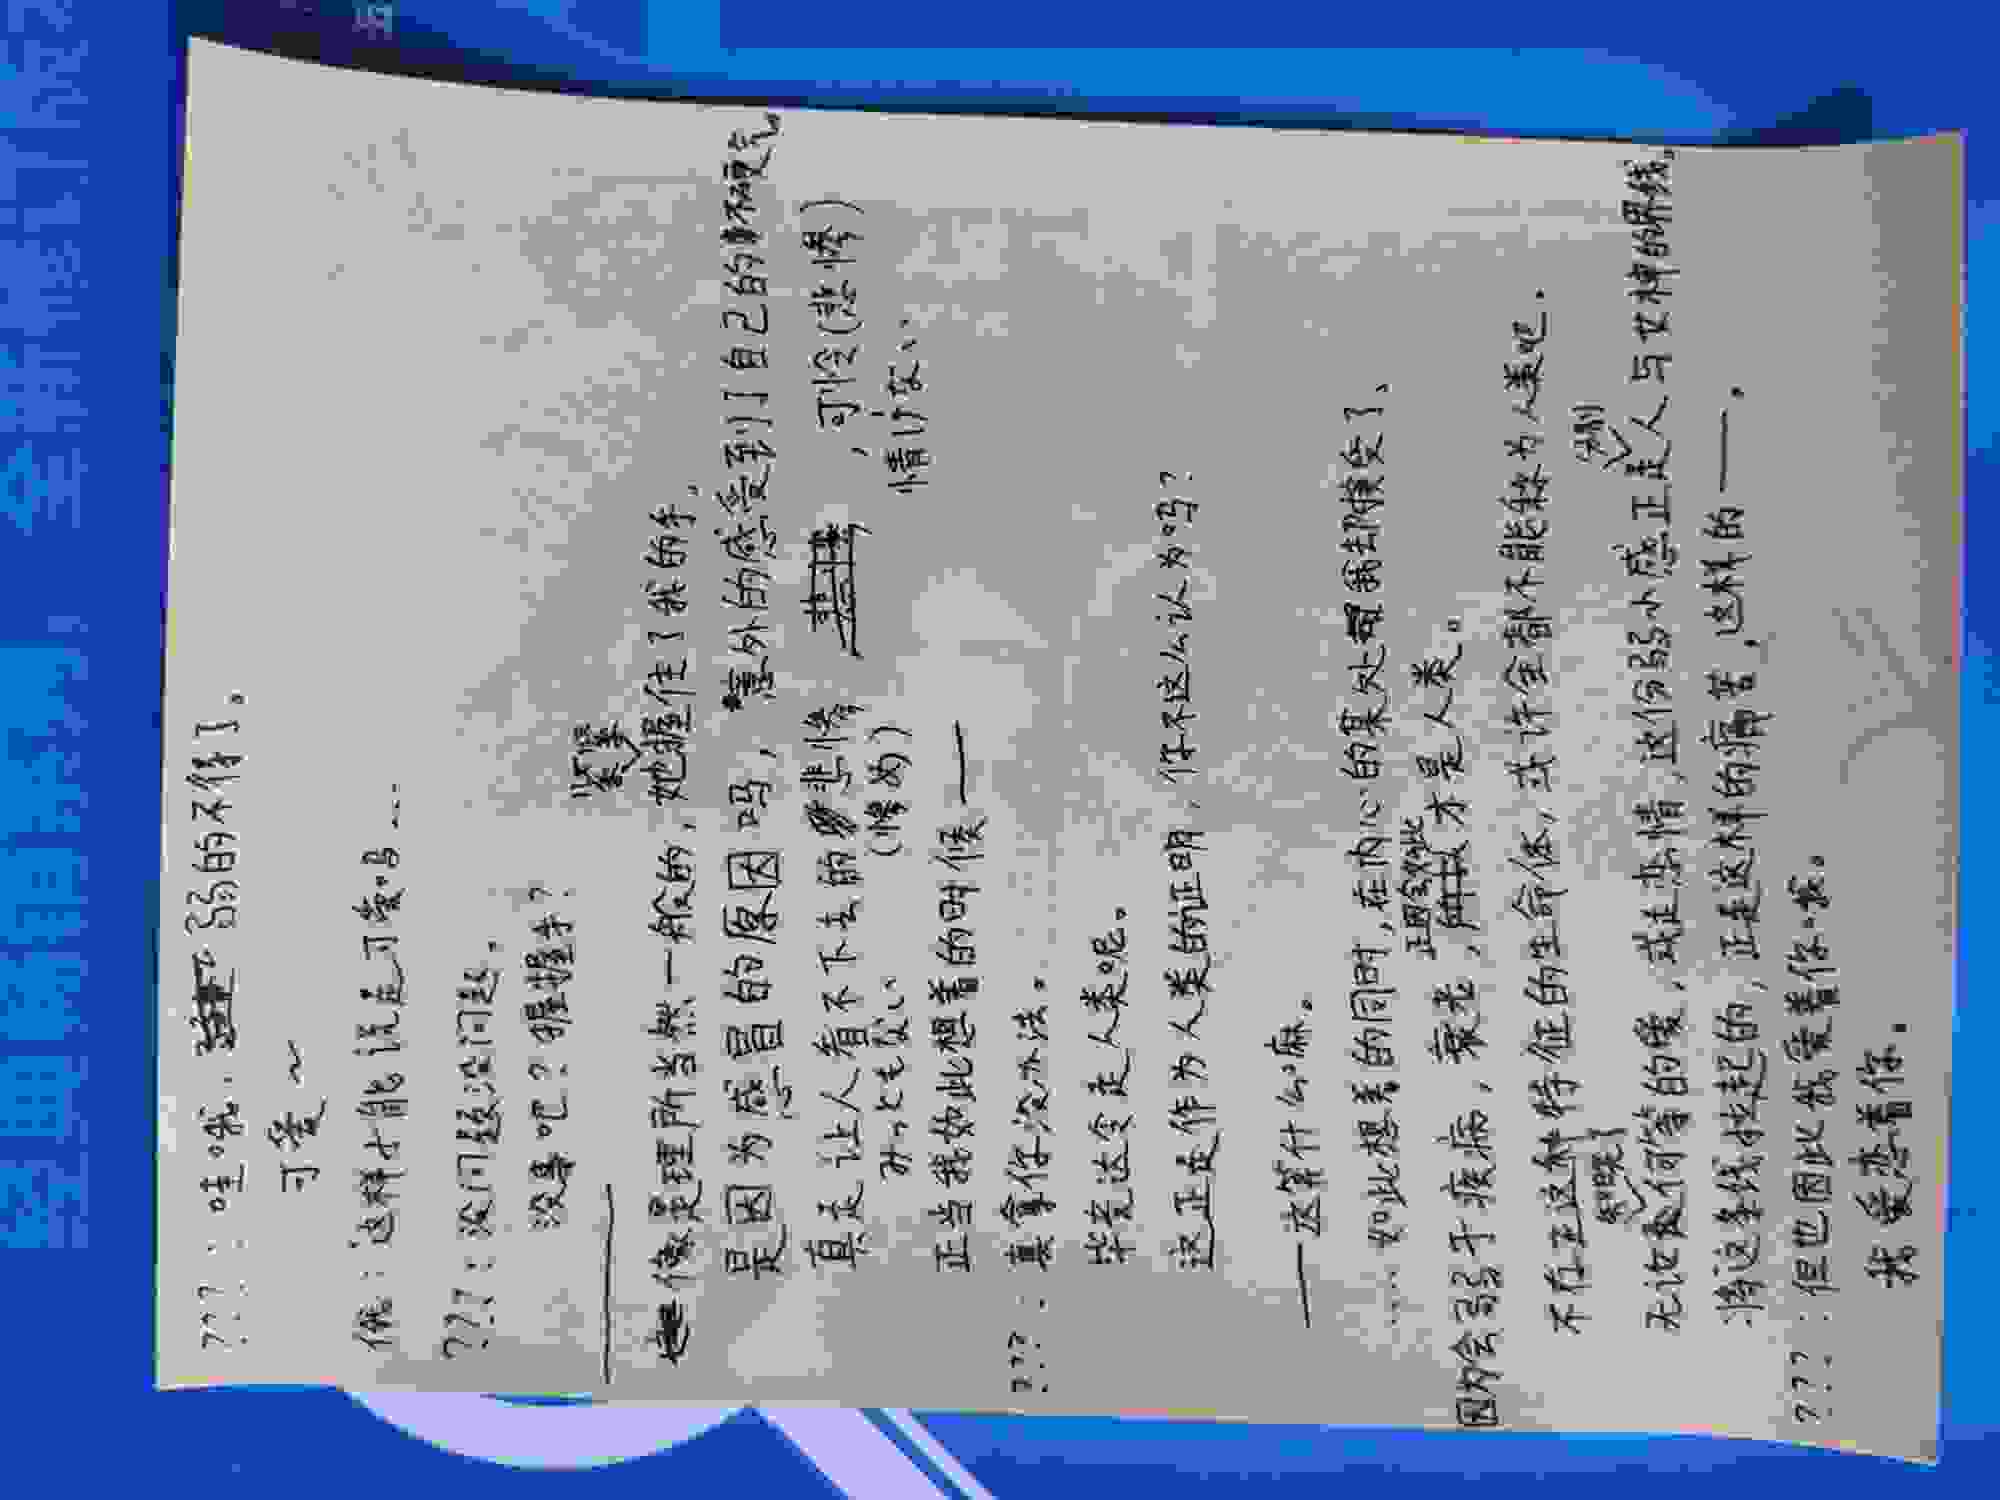 ???:哇哦.弱的不得了。
可爱~
俺:这样才能说是可爱吗……
???:没问题没问题。
没事吧?握握手?
紧紧
像是理所当然一般的,她握住了我的手。
是因为感冒的原因吗,意外的感受到了自己的不硬气。
真是让人看不下去的悲惨,可怜(悲惨)
みっともない (惨め) 情けない
正当我如此想着的时候——
???:真拿你没办法。
毕竟这令是人类呢。
这正是作为人类的证明,你不这么认为吗?
——这算什么嘛。
……如此想着的同时,在内心的某处我却接受了、
正因会如此
因为会弱于疾病,衰老,才是人类。
不在正这种特征的生命体,或许全都不能称为人类吧.
知晓了 划分
无论是何等的爱,或是恋情,这份弱小感正是人与女神的界线。
将这条线扶起的,正是这样的痛苦,这样的——.
???:但也因此我爱着你哦。
我爱恋着你。